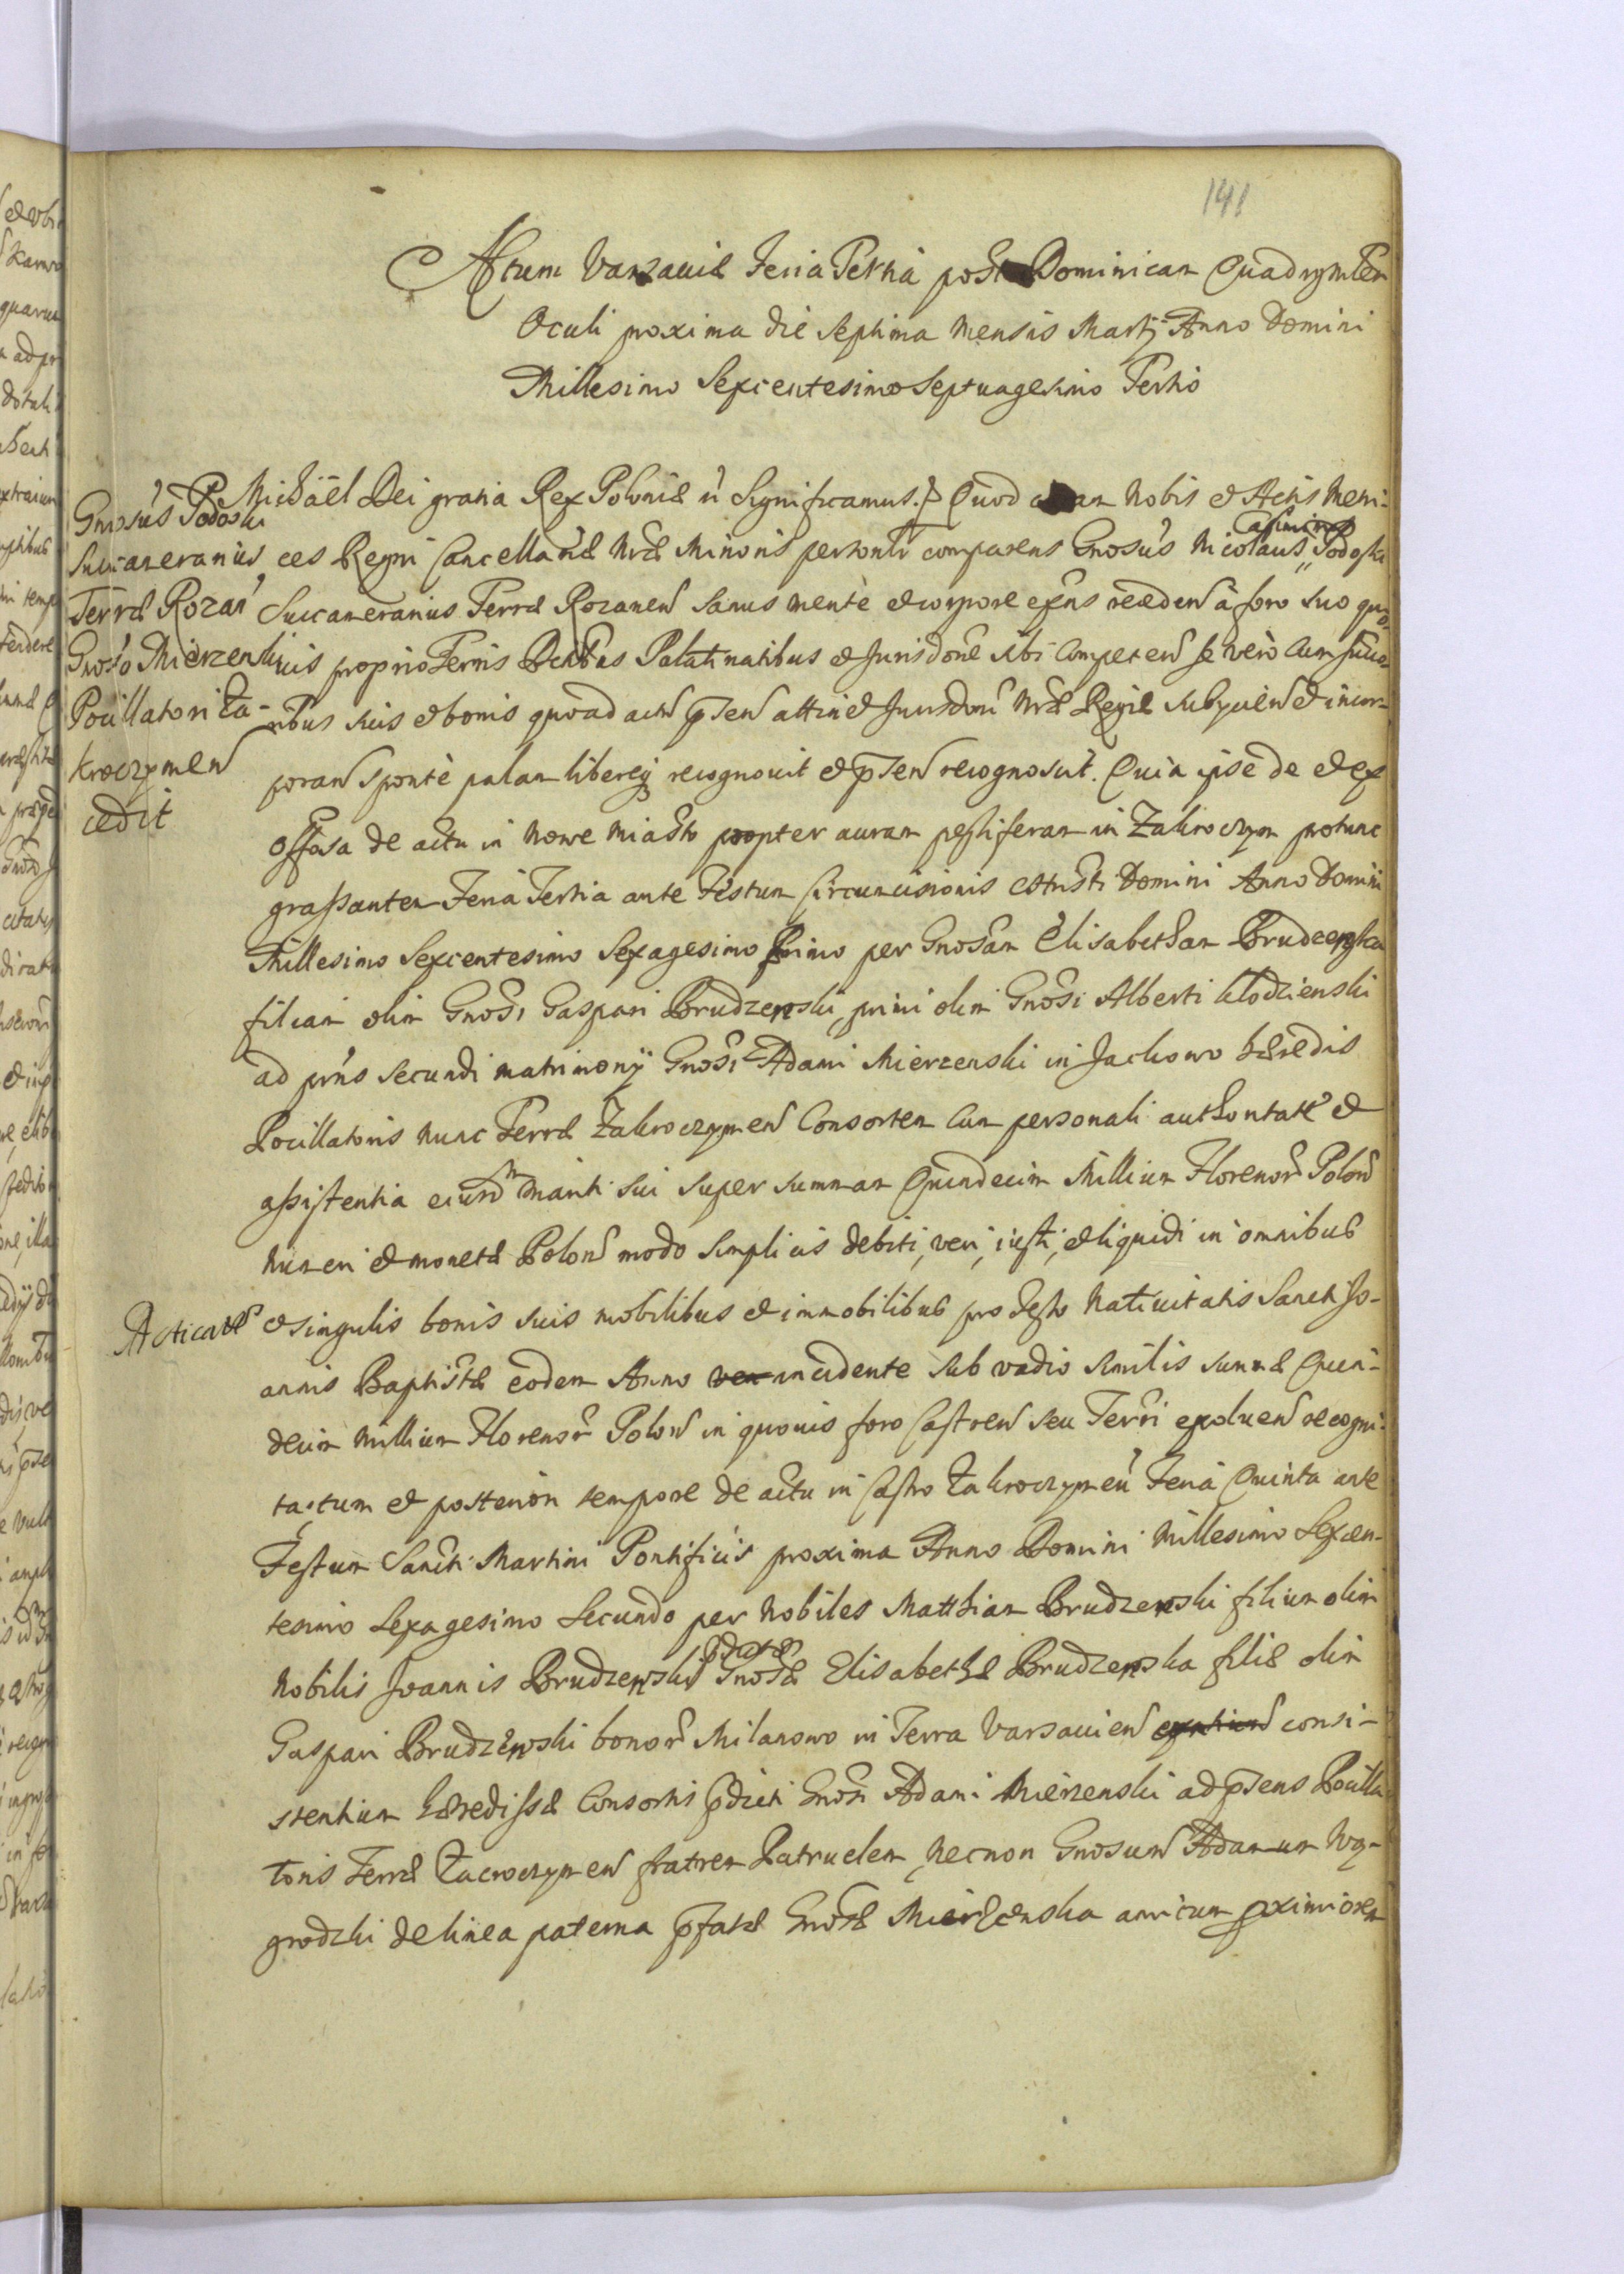 141
Actum Varsaviæ Feria Tertia post Dominicam Quadragmlem
Oculi proxima die septima Mensis Martij Anno Domini
Millesimo Sexcentesimo Septuagesimo Tertio
Michaël Dei gratia Rex Poloniæ Significamus. Quod coram Nobis et Actis Metri-
ces Regni Cancellariæ Nræ Minoris personlr comparens Gnosus Nicolaus Casimirus Podoski
Succamerarius Terræ Rozanen Sanus mente et corpore exns recaden à foro suo quo-
vis proprio Terris Palatinatibus et Jurisdone sibi competen se vero cum succo-
ribus suis et bonis quoad actū pnten attinet Jurisdoni Nræ Regiæ subycien et incor-
poran sponte palam libereq recognovit et pnten recognoscit. Quia ipse de et ex
offosa de actu in Nowe Miasto propter auram pestiferam in Zakroczym protunc
grassantem Feria Tertia ante Festum Circumcisionis Christi Domini Anno Domini
Millesimo Sexcentesimo Sexagesimo Primo per Gnosam Elisabetham Brudzenska
filiam olim Gnosi Gaspari Brudzenski, primi olim Gnosi Alberti Klodzienski
ad prns secundi matrimonij Gnosi Adami Mierzenski in Jackowo hæredis
Pocillatoris nunc Terræ Zakroczymen Consortem cum personali authoritate et
assistentia eiusdm Mariti sui super summam Quindecim Millium Florenor Polon
numeri et monetæ Polon modo simplicis debiti, veri, iusti, et liquidi in omnibus
et singulis bonis suis mobilibus et immobilibus pro Festo Nativitatis Sancti Jo-
annis Baptistæ eodem Anno incidente sub vadio similis summæ Quin-
decim Millium Florenor Polon in quovis foro Castren seu Terri exolven recogni-
tactum et posteriori tempore de actu in Castro Zakroczymen Feria Quinta ante
Festum Sancti Martini Pontificis proxima Anno Domini Millesimo Sexcen-
tesimo Sexagesimo Secundo per Nobiles Matthiam Brudzenski filium olim
Nobilis Joannis Brudzenski Gnosæ Elisabethæ Brudzenska filiæ olim
Gaspari Brudzenski bonor Milanowo in Terra Varsavien consi-
stentium hæredissæ Consortis pdicti Gnosi Adami Mierzenski ad pntens Pocilla-
toris Terræ Zacroczymen fratrem Patruelem, necnon Gnosum Adamum Wy-
grodzki de linea paterna pfatæ Gnosæ Mierzenska amicum proximiorem
Gnosus Podoski
Succamerarius
Terræ Rozan
Gnoso Mierzenski
Pocillatori Za-
kroczymen
cedit
Acticatæ